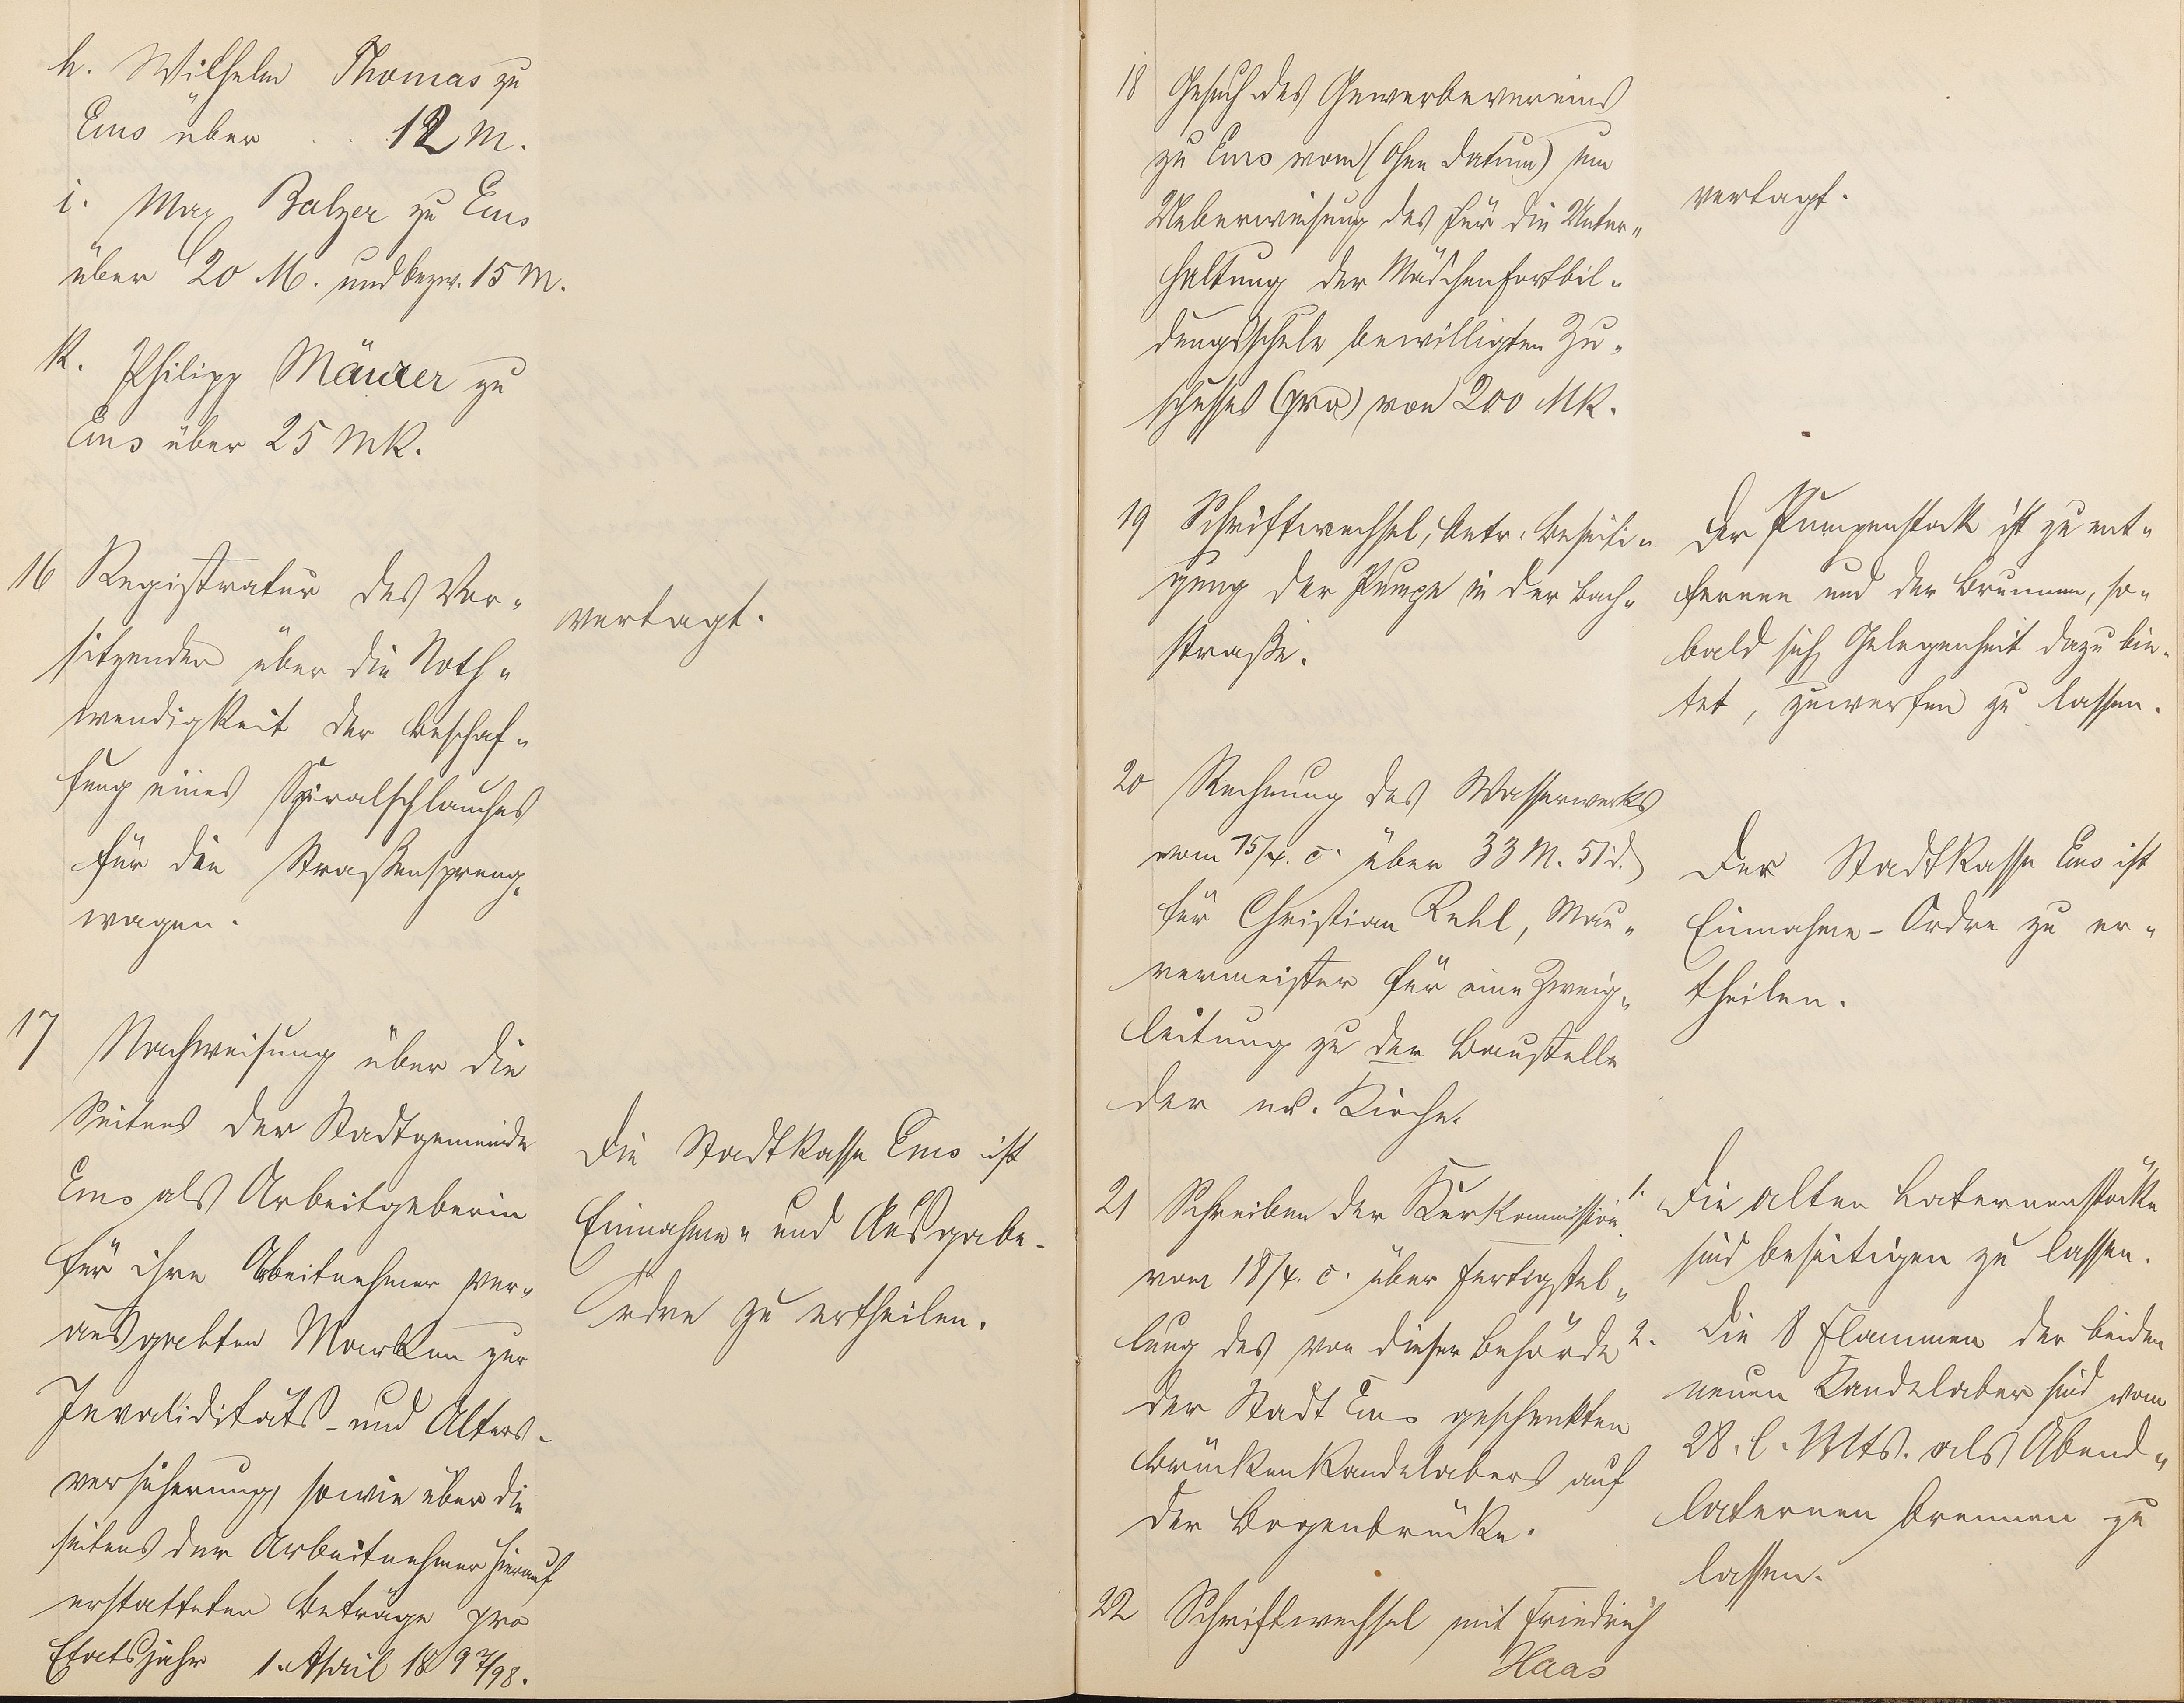 h. Wilhelm Thomas zu
Ems über . . 12 M.
i. Max Balzer zu Ems
über 20 M. und bezw. 15 M.
k. Philipp Mäurer zu
Ems über 25 Mk.
16 Registratur des Vor-
sitzenden über die Noth-
wendigkeit der Beschaf-
fung eines Spiralschlauches
für den Straßenspreng-
wagen.
vertagt.
17 Nachweisung über die
Seitens der Stadtgemeinde
Ems als Arbeitgeberin
für ihre Abeitnehmer ver-
ausgabten Marken zur
Invaliditäts- und Alters-
versicherung, sowie über die
seitens der Arbeitnehmer hierauf
erstatteten Beträge pro
Etatsjahr 1. April 1897/98.
Die Stadtkasse Ems ist
Einnahme- und Ausgabe-
Ordre zu ertheilen.
18 Gesuch des Gewerbevereins
zu Ems vom (ohne Datum) um
Ueberweisung des für die Unter-
haltung der Mädchenfortbil-
dungsschule bewilligten Zu-
schusses (pro) von 200 Mk.
vertagt.
19 Schriftwechsel, betr. Beseiti-
gung der Pumpe in der Bach-
straße.
Der Pumpenstock ist zu ent-
fernen und der Brunnen, so-
bald sich Gelegenheit dazu bie-
tet, zuwerfen zu lassen.
20 Rechnung des Wasserwerks
vom 15/4. c. über 33 M. 51 d.
für Christian Rehl, Mau-
rermeister für eine Zweig-
leitung zu der Baustelle
der ev. Kirche.
Der Stadtkasse Ems ist
Einnahme-Ordre zu er-
theilen.
21 Schreiben der Kurkommission
vom 18/4. c. über Fertigstel-
lung des von dieser Behörde
der Stadt Ems geschenkten
Brückenkandelabers auf
der Bogenbrücke.
1. Die alten Laternenstöcke
sind beseitigen zu lassen.
2. Die 8 Flammen der beiden
neuen Kandelaber sind vom
28. l. Mts. als Abend-
laternen brennen zu
lassen.
22 Schriftwechsel mit Friedrich
Haas